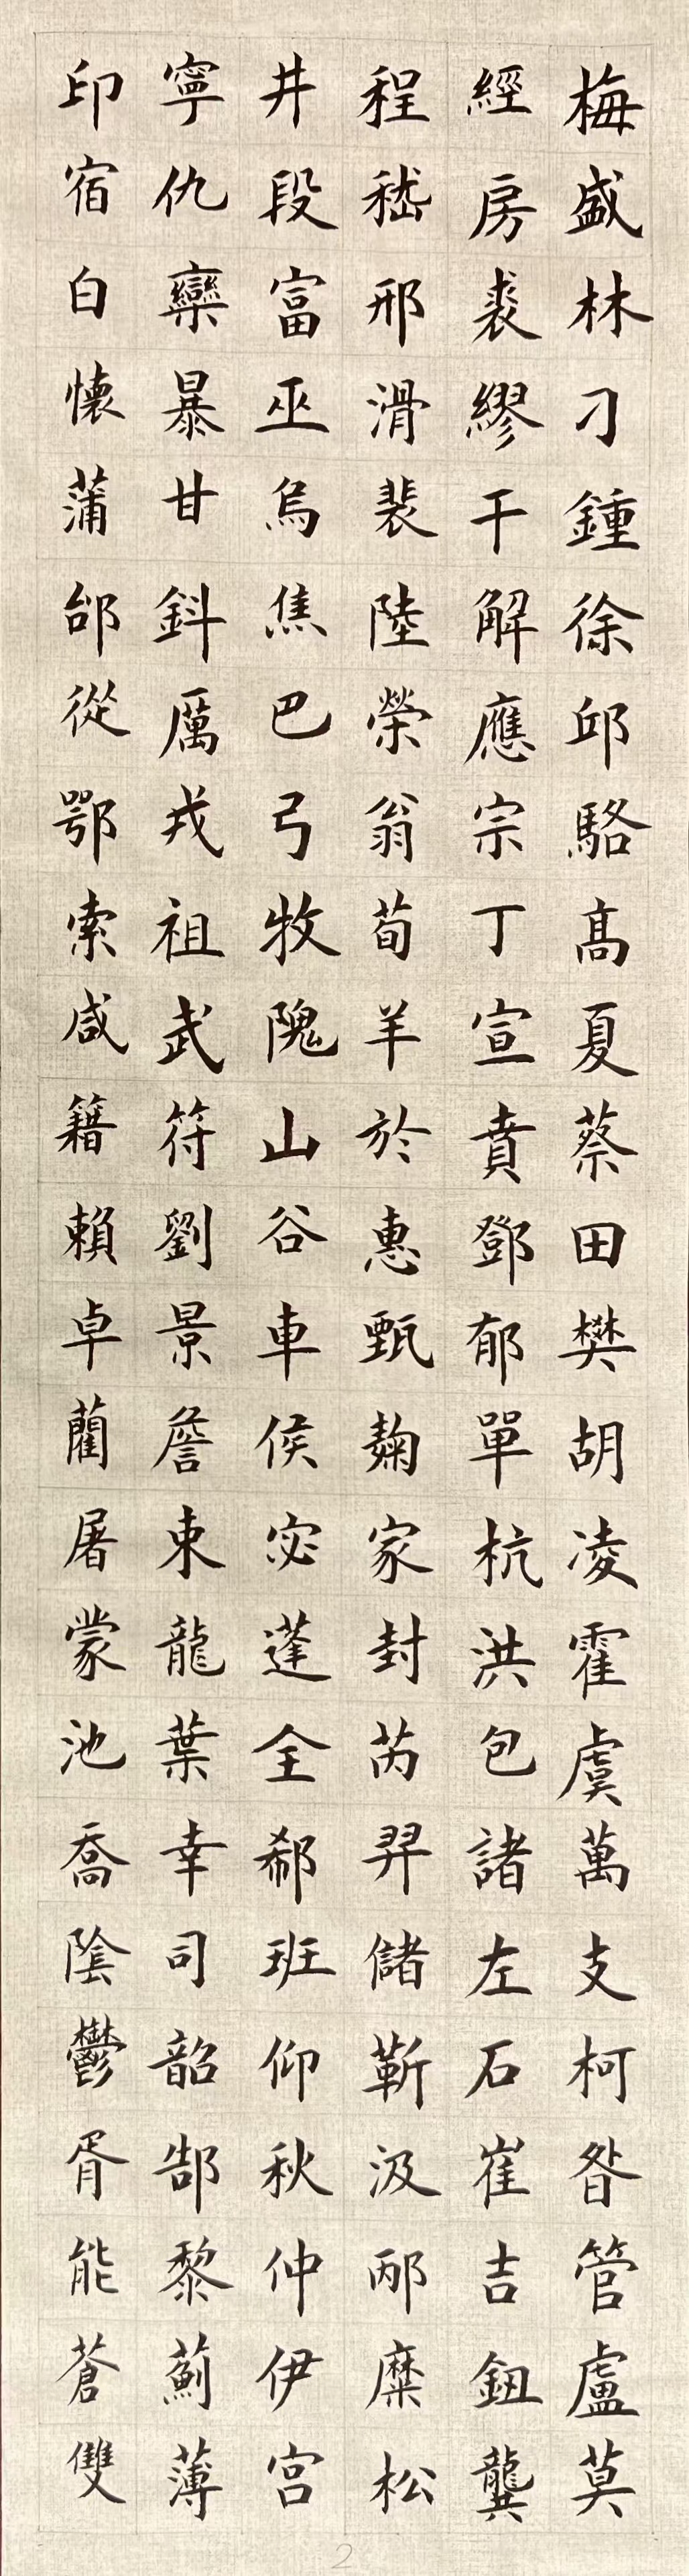 梅盛林刁鍾徐邱駱高夏蔡田樊胡凌霍虞萬支柯昝管盧莫
經房裘繆干解應宗丁宣賁鄧郁單杭洪包諸左石崔吉鈕龔
程嵇邢滑裴陸榮翁荀羊於惠甄麴家封芮羿儲靳汲邴糜松
井段富巫烏焦巴弓牧隗山谷車侯宓蓬全郗班仰秋仲伊宮
寧仇欒暴甘鈄厲戎祖武符劉景詹束龍葉幸司韶郜黎薊薄
印宿白懷蒲邰從鄂索咸籍賴卓藺屠蒙池喬陰鬱胥能蒼雙
2